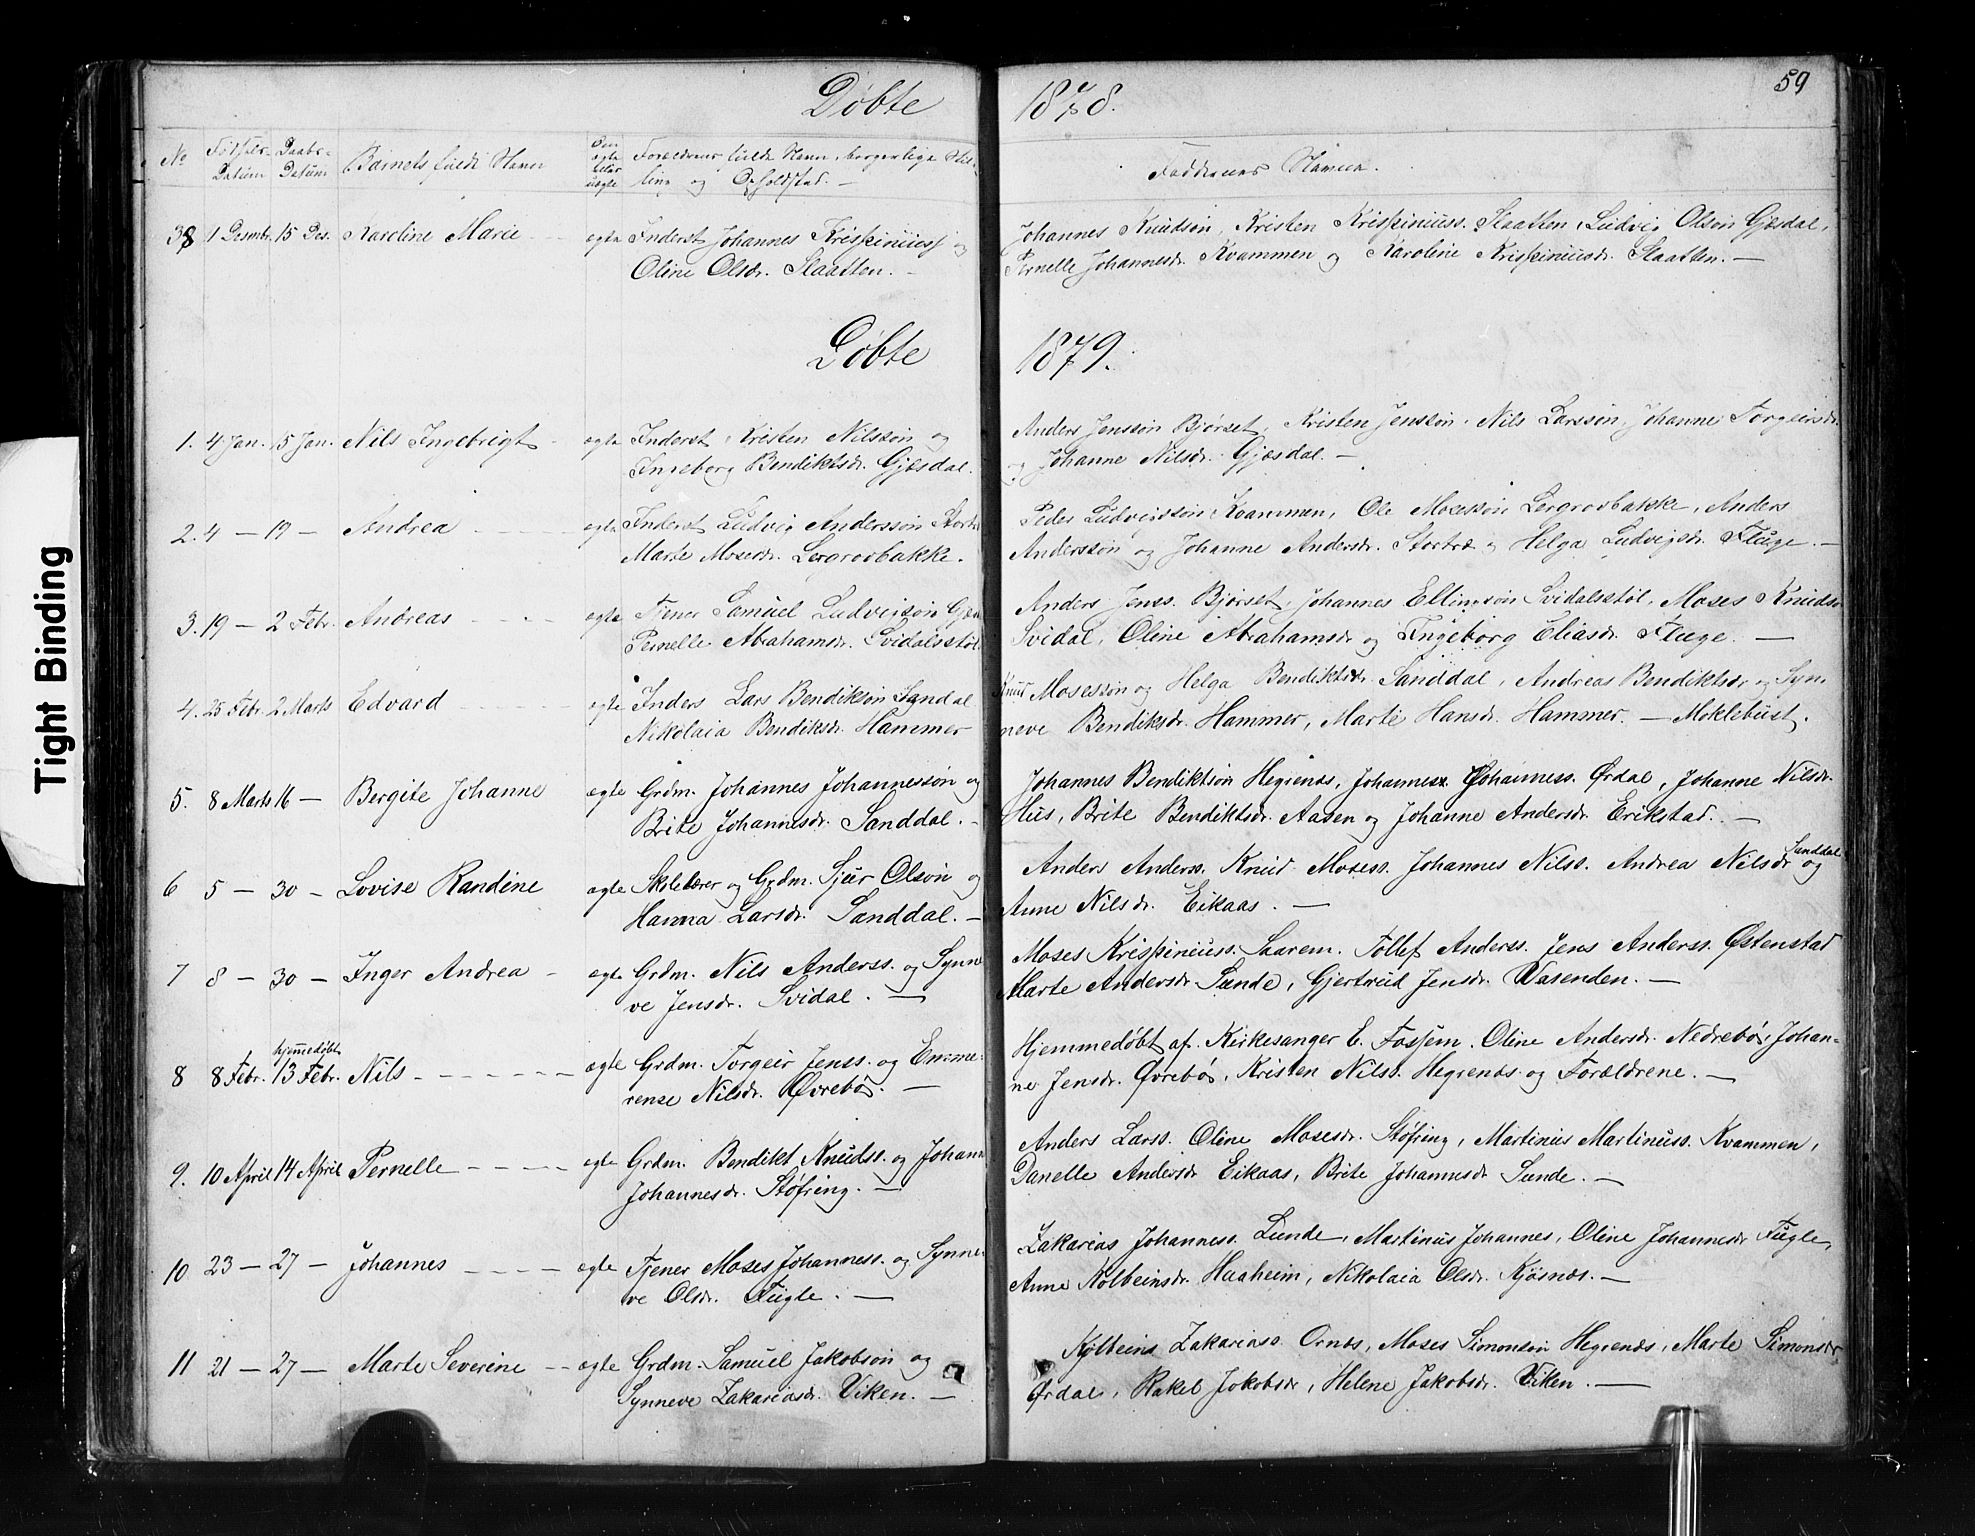 Døbte 1878. 59
No Fødsels-Datum Daabs-Datum Barnets fulde Navn Om ægte eller uægte Forældrenes fulde Navn, borgerlige Stil-
ling og Opholdsted. — Faddernes Navne.
38 1 Desmbr. 15 Des. Karoline Marie — ægte Inderst Johannes Krispinuss og
Oline Olsdr. Slaatten. —
Johannes Knudsøn, Kristen Krispinuss. Slaatten, Ludvig Olsøn Gjesdal,
Pernelle Johannesdr. Kvammen og Karoline Krispinusdr. Slaatten. —
Døbte 1879.
1. 4 Jan. 5 Jan. Nils Ingebrigt - ægte Inderst Kristen Nilssøn og
Ingeborg Bendiktsdr. Gjesdal.
Anders Jenssøn Bjørset, Kristen Jenssøn, Nils Larssøn, Johanne Torgeirsdr.
og Johanne Nilsdr. Gjæsdal. —
2. 4 — 19 — Andrea ---- ægte Inderst Ludvig Anderssøn Stortræ
Marte Mosesdr. Lergrovbakke.
Peder Ludvigsøn Kvammen, Ole Mosessøn Lergrovbakke, Anders
Anderssøn og Johanne Andersdr. Stortræ og Helga Ludvigsdr. Fluge. —
3. 19 — 2 Febr. Andreas ---- ægte Tjener Samuel Ludvigsøn
Pernelle Abrahamsdr. Svidalsstøl
Anders Jenss. Bjørset, Johannes Ellingsøn Svidalsstøl, Moses Knuds.
Svidal, Oline Abrahamsdr og Ingeborg Eliasdr. Fluge. —
4. 25 Febr. 2 Marts Edvard ----- ægte Inders Lars Bendiksøn Sandal
Nikolaia Bendiksdr. Hammer
Knud Mosessøn og Helga Bendiktsdr. Sanddal, Andreas Bendiktsdr og Syn-
neve Bendiksdr. Hammer, Marte Hansdr. Hammer. — Moklebust.
5. 8 Marts 16 — Bergite Johanne ægte Grdm. Johannes Johannessøn og
Brite Johannesdr. Sanddal. -
Johannes Bendiktsøn Hegrenæs, Johannes Johanness. Ørdal, Johanne Nilsdr.
Hus, Brite Bendiktsdr. Aasen og Johanne Andersdr. Erikstad. —
6 5 — 30 — Lovise Randine ægte Skolelærer og Grdm. Sjur Olsøn og
Hanna Larsdr. Sanddal. —
Anders Anderss. Knud Mosess. Johannes Nilss. Andrea Nilsdr Sanddal og
Anne Nilsdr. Eikaas. —
7 8 — 30 — Inger Andrea - ægte Grdm. Nils Anderss. og Synne
ve Jensdr. Svidal. —
Moses Krispinuss. Aarem. Tollef Anderss. Jens Anderss. Østenstad
Marte Andersdr Sunde, Gjertrud Jensdr. Vasenden. —
8 8 Febr. hjemmedøbt 13 Febr. Nils ------ ægte Grdm. Torgeir Jenss. og Emme-
rense Nilsdr. Øvrebø. —
Hjemmedøbt af Kirkesanger E. Fossjem. Oline Andersdr. Nedrebø, Johan-
ne Jensdr. Øvrebø, Kristen Nilss. Hegrenæs og Forældrene. —
9. 10 April 14 April Pernelle ----- ægte Grdm. Bendikt Knudss. og Johann
Johannesdr. Støfring. —
Anders Larss. Oline Mosesdr. Støfring, Martinus Martinuss. Kvammen,
Danelle Andersdr Eikaas, Brite Johannesdr Sunde. —
10 23 — 27 — Johannes ---- ægte Tjener Moses Johanness. og Synne
ve Olsdr. Fugle. —
Zakarias Johanness. Lunde, Martinus Johannes, Oline Johannesdr Fugle,
Anne Kolbeinsdr. Haaheim, Nikolaia Olsdr. Kjøsnæs. —
11 21 — 27 — Marte Severine -- ægte Grdm. Samuel Jakobsøn og
Synneve Zakariasdr. Viken. —
Kolbeins Zakariass. Ornæs, Moses Simonsøn Hegrenæs, Marte Simonsdr
Ørdal, Rakel Jokobsdr, Helene Jakobsdr. Viken. —
Tight Binding